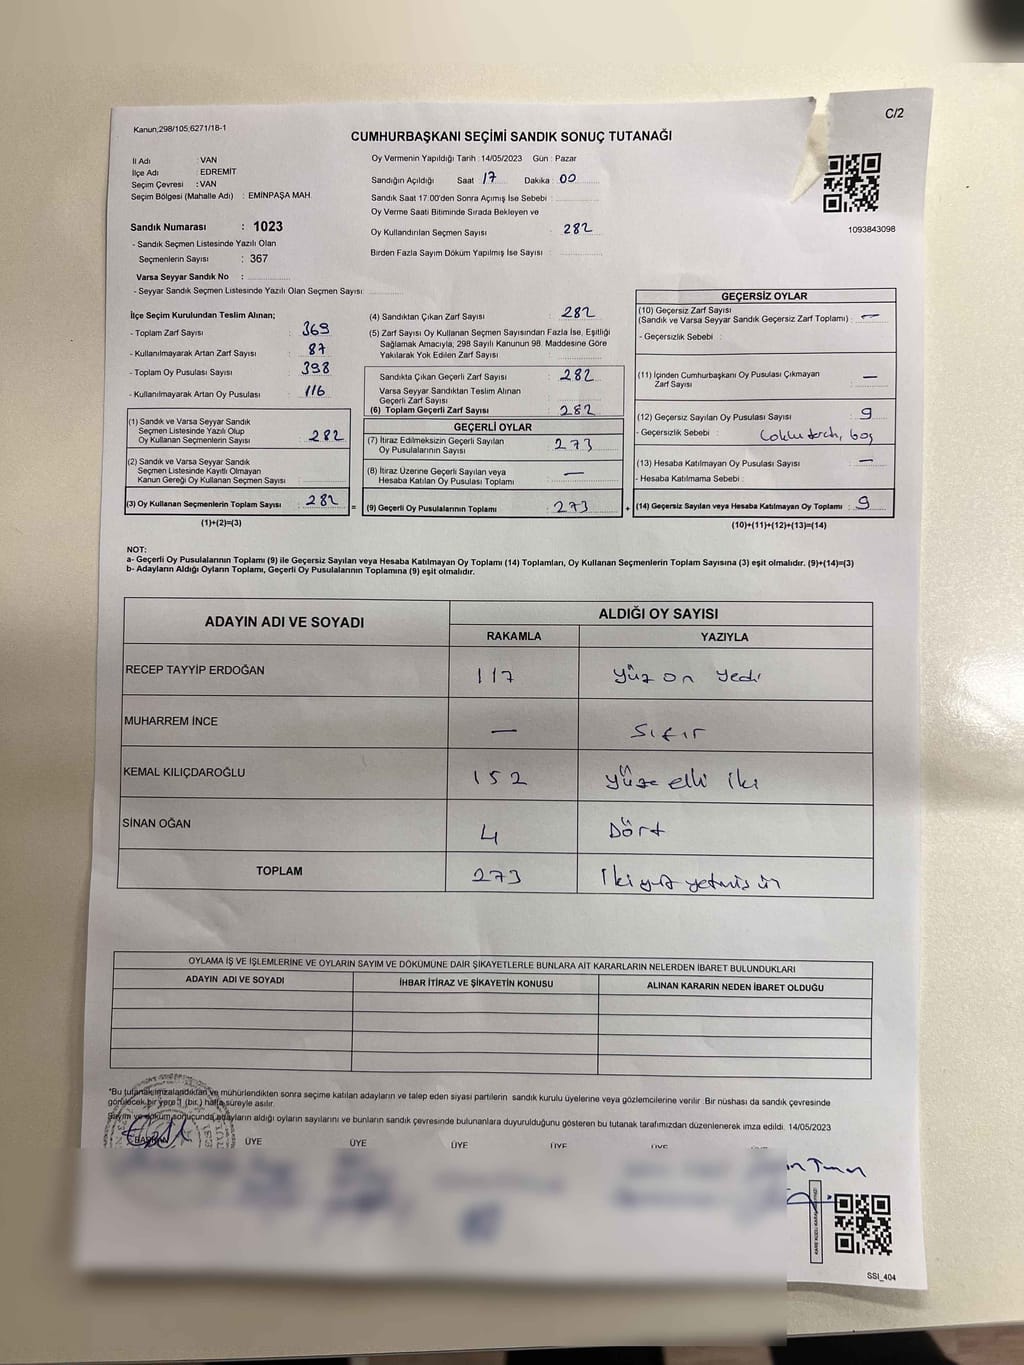 Kanun,298/105,6271/18-1
C/2
CUMHURBAŞKANI SEÇİMİ SANDIK SONUÇ TUTANAĞI
İl Adı : VAN
İlçe Adı : EDREMİT
Seçim Çevresi : VAN
Seçim Bölgesi (Mahalle Adı) : EMİNPAŞA MAH.
Oy Vermenin Yapıldığı Tarih : 14/05/2023 Gün : Pazar
Sandığın Açıldığı Saat : 17 Dakika : 00
Sandık Saat 17:00'den Sonra Açımış İse Sebebi :
Oy Verme Saati Bitiminde Sırada Bekleyen ve
Oy Kullandırılan Seçmen Sayısı : 282
Birden Fazla Sayım Döküm Yapılmış İse Sayısı :
1093843098
Sandık Numarası : 1023
- Sandık Seçmen Listesinde Yazılı Olan
Seçmenlerin Sayısı : 367
Varsa Seyyar Sandık No :
- Seyyar Sandık Seçmen Listesinde Yazılı Olan Seçmen Sayısı:
İlçe Seçim Kurulundan Teslim Alınan;
- Toplam Zarf Sayısı : 369
- Kullanılmayarak Artan Zarf Sayısı : 87
- Toplam Oy Pusulası Sayısı : 398
- Kullanılmayarak Artan Oy Pusulası : 116
(1) Sandık ve Varsa Seyyar Sandık
Seçmen Listesinde Yazılı Olup
Oy Kullanan Seçmenlerin Sayısı : 282
(2) Sandık ve Varsa Seyyar Sandık
Seçmen Listesinde Kayıtlı Olmayan
Kanun Gereği Oy Kullanan Seçmen Sayısı :
(3) Oy Kullanan Seçmenlerin Toplam Sayısı : 282
(1)+(2)=(3)
(4) Sandıktan Çıkan Zarf Sayısı : 282
(5) Zarf Sayısı Oy Kullanan Seçmen Sayısından Fazla İse, Eşitliği
Sağlamak Amacıyla, 298 Sayılı Kanunun 98. Maddesine Göre
Yakılarak Yok Edilen Zarf Sayısı :
Sandıkta Çıkan Geçerli Zarf Sayısı : 282
Varsa Seyyar Sandıktan Teslim Alınan
Geçerli Zarf Sayısı :
(6) Toplam Geçerli Zarf Sayısı : 282
GEÇERLİ OYLAR
(7) İtiraz Edilmeksizin Geçerli Sayılan
Oy Pusulalarının Sayısı : 273
(8) İtiraz Üzerine Geçerli Sayılan veya
Hesaba Katılan Oy Pusulası Toplamı : —
= (9) Geçerli Oy Pusulalarının Toplamı : 273
GEÇERSİZ OYLAR
(10) Geçersiz Zarf Sayısı
(Sandık ve Varsa Seyyar Sandık Geçersiz Zarf Toplamı) : —
- Geçersizlik Sebebi :
(11) İçinden Cumhurbaşkanı Oy Pusulası Çıkmayan
Zarf Sayısı : —
(12) Geçersiz Sayılan Oy Pusulası Sayısı : 9
- Geçersizlik Sebebi : boş
(13) Hesaba Katılmayan Oy Pusulası Sayısı : —
- Hesaba Katılmama Sebebi :
+ (14) Geçersiz Sayılan veya Hesaba Katılmayan Oy Toplamı : 9
(10)+(11)+(12)+(13)=(14)
NOT:
a- Geçerli Oy Pusulalarının Toplamı (9) ile Geçersiz Sayılan veya Hesaba Katılmayan Oy Toplamı (14) Toplamları, Oy Kullanan Seçmenlerin Toplam Sayısına (3) eşit olmalıdır. (9)+(14)=(3)
b- Adayların Aldığı Oyların Toplamı, Geçerli Oy Pusulalarının Toplamına (9) eşit olmalıdır.
ADAYIN ADI VE SOYADI
ALDIĞI OY SAYISI
RAKAMLA YAZIYLA
RECEP TAYYİP ERDOĞAN 117 yüz on yedi
MUHARREM İNCE — Sıfır
KEMAL KILIÇDAROĞLU 152 yüz elli iki
SİNAN OĞAN 4 Dört
TOPLAM 273 İkiyüz yetmiş üç
OYLAMA İŞ VE İŞLEMLERİNE VE OYLARIN SAYIM VE DÖKÜMÜNE DAİR ŞİKAYETLERLE BUNLARA AİT KARARLARIN NELERDEN İBARET BULUNDUKLARI
ADAYIN ADI VE SOYADI İHBAR İTİRAZ VE ŞİKAYETİN KONUSU ALINAN KARARIN NEDEN İBARET OLDUĞU
*Bu tutanak imzalandıktan ve mühürlendikten sonra seçime katılan adayların ve talep eden siyasi partilerin sandık kurulu üyelerine veya gözlemcilerine verilir. Bir nüshası da sandık çevresinde
görülecek bir yere 1 (bir) hafta süreyle asılır.
Sayım ve döküm sonucunda adayların aldığı oyların sayılarını ve bunların sandık çevresinde bulunanlara duyurulduğunu gösteren bu tutanak tarafımızdan düzenlenerek imza edildi. 14/05/2023
BAŞKAN ÜYE ÜYE ÜYE ÜYE ÜYE
SSI_404